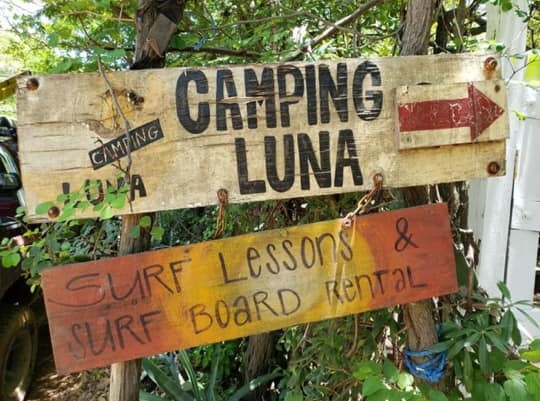 CAMPING
LUNA
CAMPING
LUNA
SURF LESSONS &
SURF BOARD RENTAL